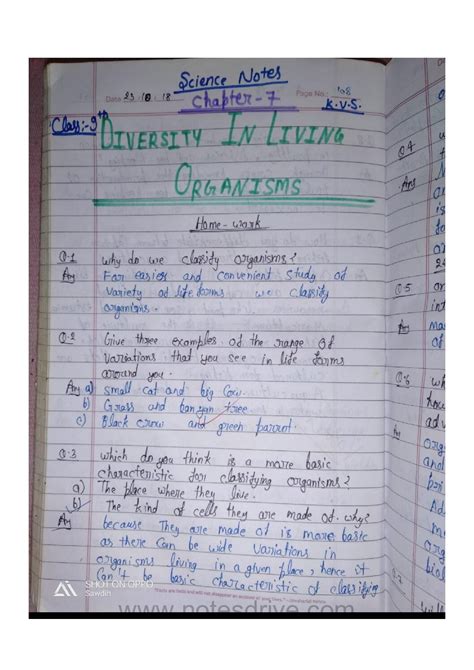 Science Notes
Chapter-7
Date 23/10/18
Page No.: 108
K.V.S.
Class:-9th
DIVERSITY IN LIVING
ORGANISMS
Home-work
Q.1 Why do we classify organisms?
Ans For easier and convenient study of
variety of life forms we classify
organisms.
Q.2 Give three examples of the range of
variations that you see in life forms
around you.
Ans a) Small cat and big cow.
b) Grass and banyan tree
c) Black crow and green parrot.
Q.3 which do you think is a more basic
characteristic for classifying organisms?
a) The place where they live.
b) The kind of cells they are made of. why?
Ans because They are made of is more basic
as there can be wide variations in
organisms living in a given place, hence it
Can't be basic characteristic of classifying
SHOT ON OPPO
Sawdin
www.notesdrive.com
Q.4
Ans
Q.5
Ans
Q.6